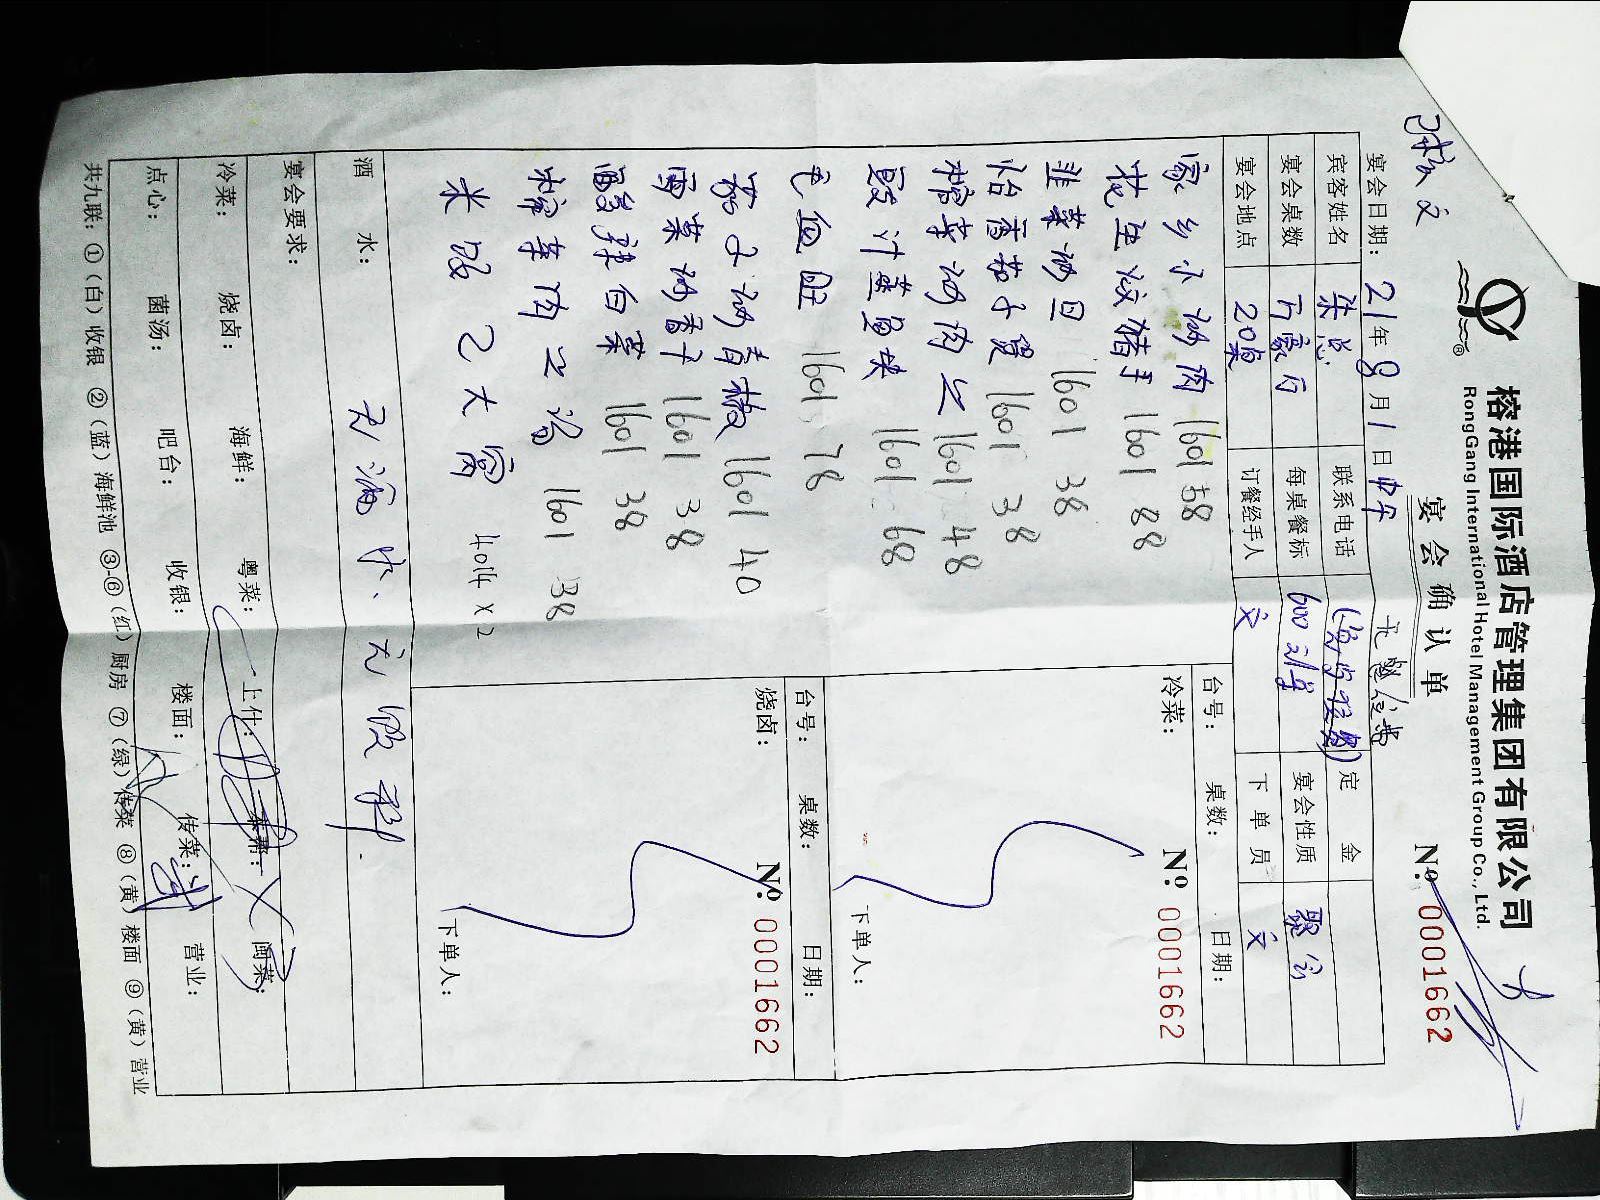 榕港国际酒店管理集团有限公司
RongGang International Hotel Management Group Co., Ltd.
宴会确认单
№: 0001662
宴会日期: 21年8月1日中午
宾客姓名 联系电话 定金
宴会桌数 每桌餐标 600 宴会性质 聚会
宴会地点 20桌 订餐经手人 文 下单员 文
家乡小炒肉 1601 58
花生 猪手 1601 88
韭菜炒旦 1601 38
茄子煲 1601 38
榨菜炒肉 1601 48
鱼块 1601 68
毛血旺 1601 78
茄子炒青椒 1601 40
1601 38
酸辣白菜 1601 38
榨菜肉 汤 1601 38
米饭 2大窝 4014 X 2
台号: 桌数: 日期:
冷菜: № 0001662
下单人:
台号: 桌数: 日期:
烧卤: № 0001662
下单人:
酒水: 无酒水、无饮料.
宴会要求:
冷菜: 烧卤: 海鲜: 粤菜: 上什: 本帮: 闽菜:
点心: 菌汤: 吧台: 收银: 楼面: 传菜: 营业:
共九联: ①(白)收银 ②(蓝)海鲜池 ③-⑥(红)厨房 ⑦(绿)传菜 ⑧(黄)楼面 ⑨(黄)营业